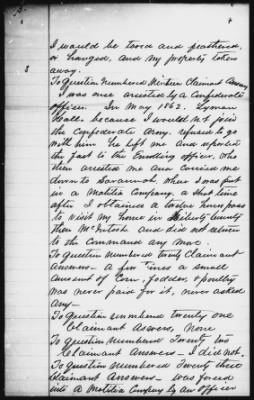 I would be tared and feathered,
or hanged, and my property taken
away.
To Question Numbered Nineteen Claimant Answers
I was once arrested by a Confederate
officer. In May 1862. Lyman
Hall. because I would not join
the Confederate Army. refused to go
with him he left me and reported
the fact to the Enrolling officer. She
then arrested me and carried me
down to Savannah, where I was put
in a Militia Company, a short time
after I obtained a twelve hours pass
to visit my home in Liberty County
then McIntosh and did not return
to the Command any more.
To Question numbered twenty Claimant
Answers – a few times a small
amount of Corn, fodder, & poultry
was never paid for it, never asked
any –
To Question numbered twenty one
Claimant Answers, None
To Question Numbered Twenty two
Claimant Answers – I did not.
To Question Numbered Twenty three
Claimant Answers – was forced
into a Militia Company by an officer